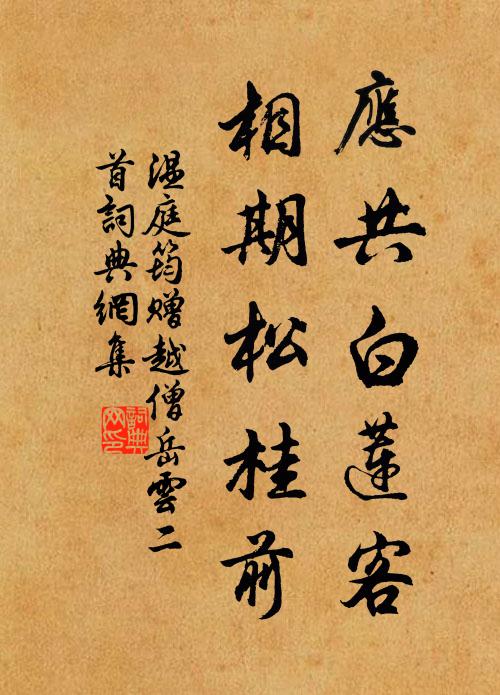 應共白蓮客
相期松桂前
溫庭筠贈越僧岳雲二
首詞典網集
詞典网印